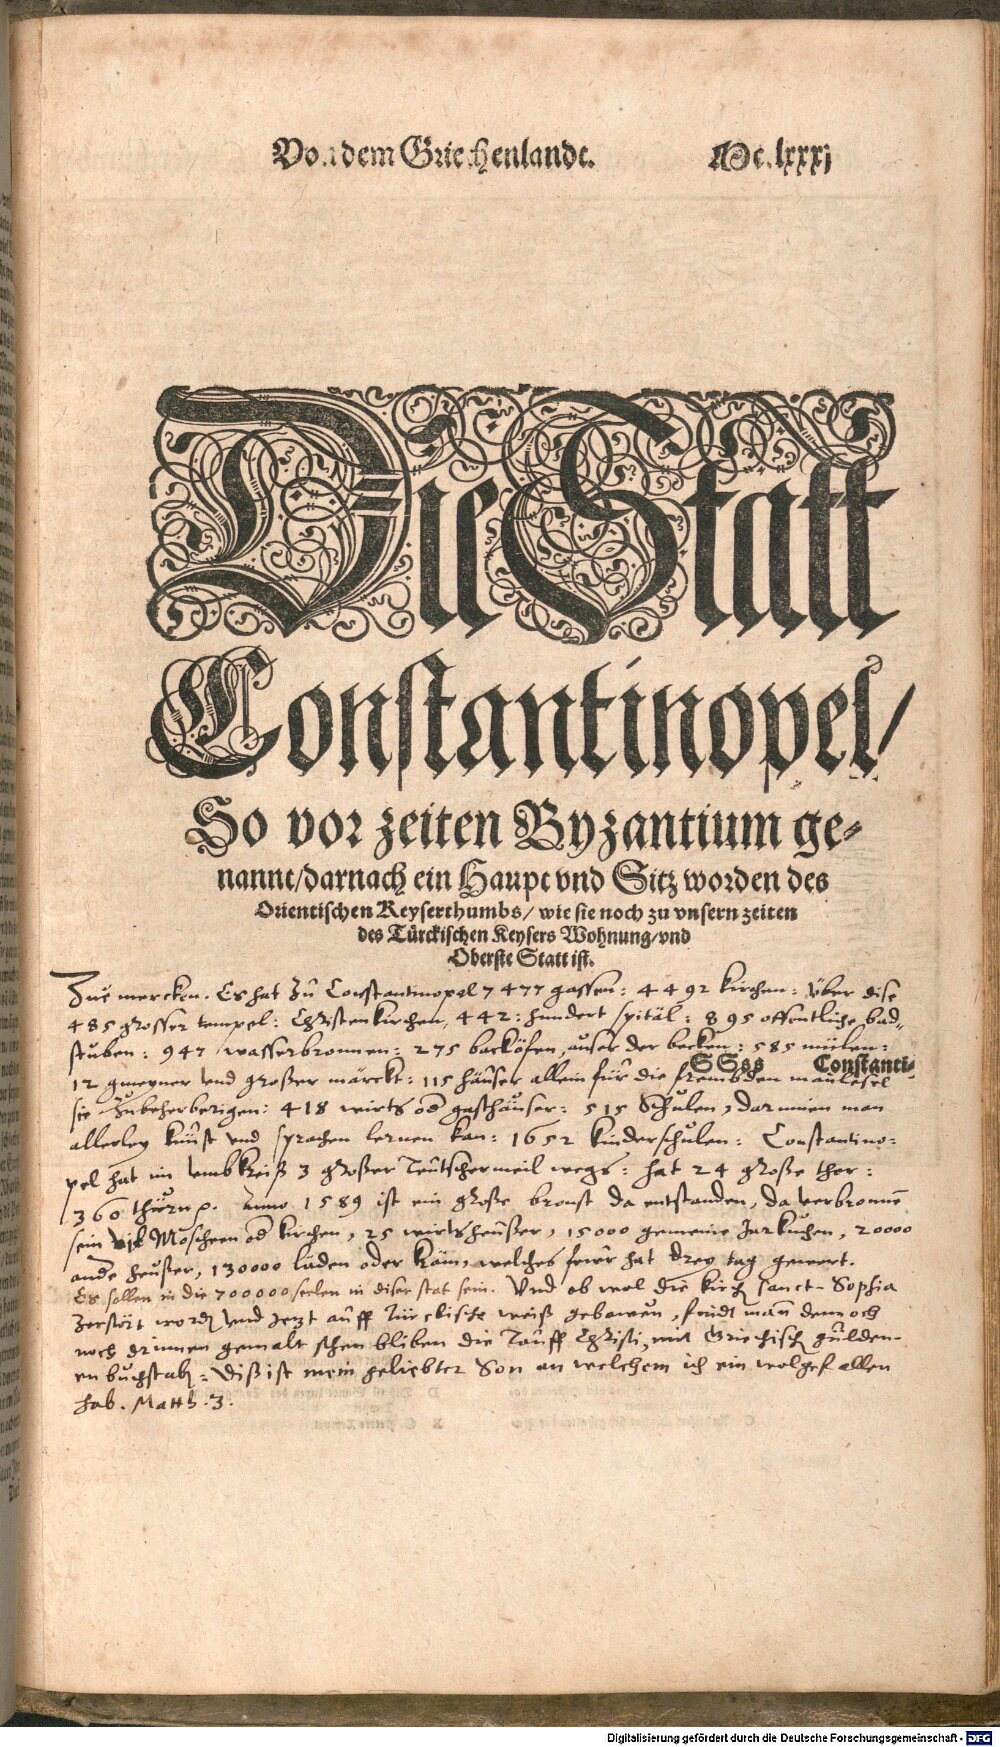 Von dem Griechenlande. Mc.lxxxj
Die Statt
Constantinopel/
So vor zeiten Byzantium ge⸗
nannt/darnach ein Haupt vnd Sitz worden des
Orientischen Keyserthumbs/ wie sie noch zu vnsern zeiten
des Türckischen Keysers Wohnung/vnd
Oberste Statt ist.
Zue mercken. Es hat zů Constantinopel 7477 gassen: 4492 kirchen: Über dise
485 grosser tempel: Christenkirchen, 442: hundert spitäl: 895 offentliche bad⸗
stuben: 947 wasserbronnen: 275 backöfen, auser der becken: 585 mülen:
SSss Constanti⸗
12 gmeyner vnd großer märckt: 115 häuser allein für die frembden maulesel
sie zubeherbergen: 418 wirts od gasthäuser: 515 Schulen, darinnen man
allerley kunst vnd sprachen lernen kan: 1652 kinderschulen: Constantino:
pel hat im vmbkreiß 3 großer Teutschermeil wegs: hat 24 große thor:
360 thürn. Anno 1589 ist ein große brunst da entstanden, da verbronnē
sein Moscheen od kirchen, 25 wirtsheüßer, 15000 gemeine, 20000
ande heußer, 130000 läden oder Käm, welches feur hat drey tag gewert.
Es sollen in die 700000 seelen in diser stat sein. Vnd ob wol die kirch sanct-Sophia
zerstört word vnd jetzt auff Türckische weiß gebawen, findt man dennoch
noch drinnen gemalt stehen bliben die Tauff Christi, mit Griechisch gulden-
en buchstab: Diß ist mein geliebter Son an welchem ich ein wolgefallen
hab. Matth. 3.
Digitalisierung gefördert durch die Deutsche Forschungsgemeinschaft - DFG